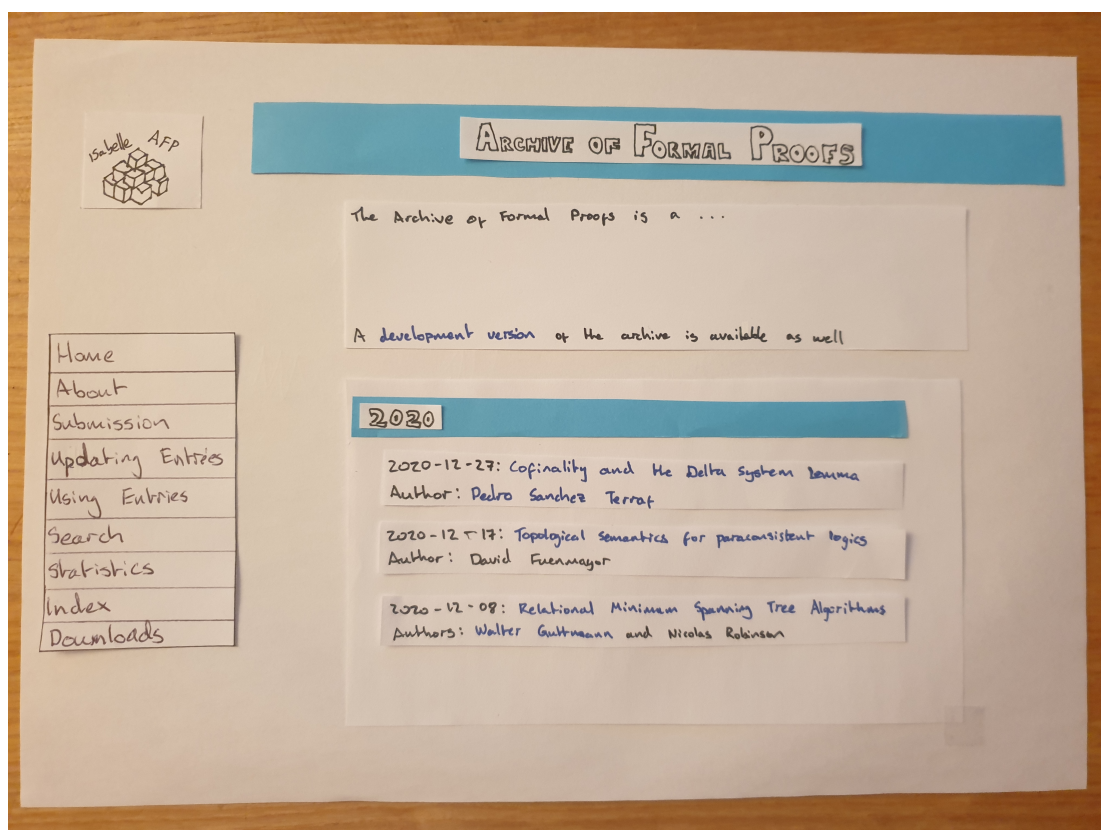 Isabelle AFP
ARCHIVE OF FORMAL PROOFS
The Archive of Formal Proofs is a ...
A development version of the archive is available as well
Home
About
Submission
Updating Entries
Using Entries
Search
Statistics
Index
Downloads
2020
2020-12-27: Cofinality and the Delta System Lemma
Author: Pedro Sanchez Terraf
2020-12-17: Topological Semantics for paraconsistent logics
Author: David Fuenmayor
2020-12-08: Relational Minimum Spanning Tree Algorithms
Authors: Walter Guttmann and Nicolas Robinson